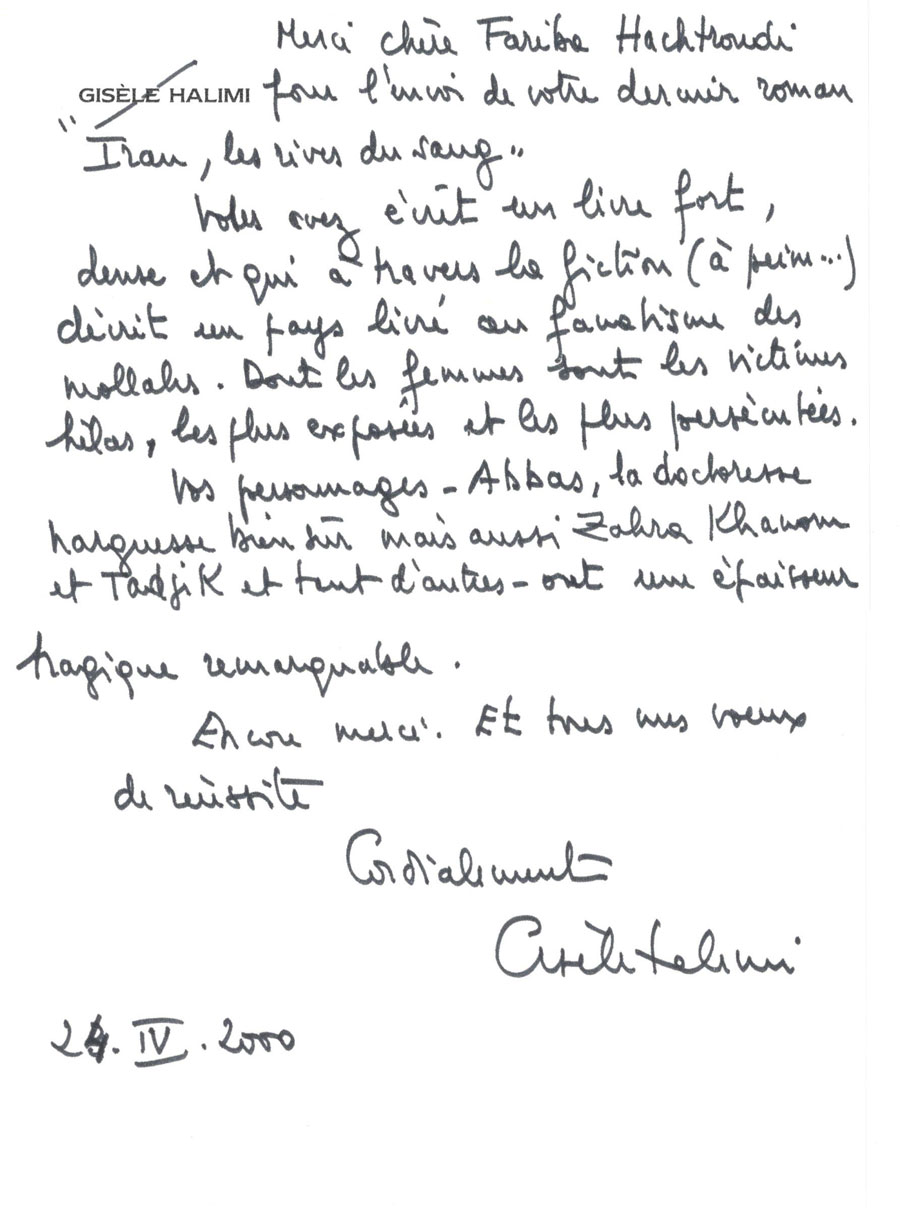 Merci chère Fariba Hachtroudi
GISÈLE HALIMI
pour l'envoi de votre dernier roman
"Iran, les rives du sang"
Vous avez écrit un livre fort,
dense et qui à travers la fiction (à peine...)
décrit un pays livré au fanatisme des
mollahs. Dont les femmes sont les victimes
hélas, les plus exposées et les plus persécutées.
Vos personnages - Abbas, la doctoresse
bien sûr mais aussi Zahra Khanom
et TadjiK et tant d'autres - ont une épaisseur
tragique remarquable.
Encore merci. Et tous mes voeux
de réussite
Cordialement
Gisèle Halimi
IV. 2000